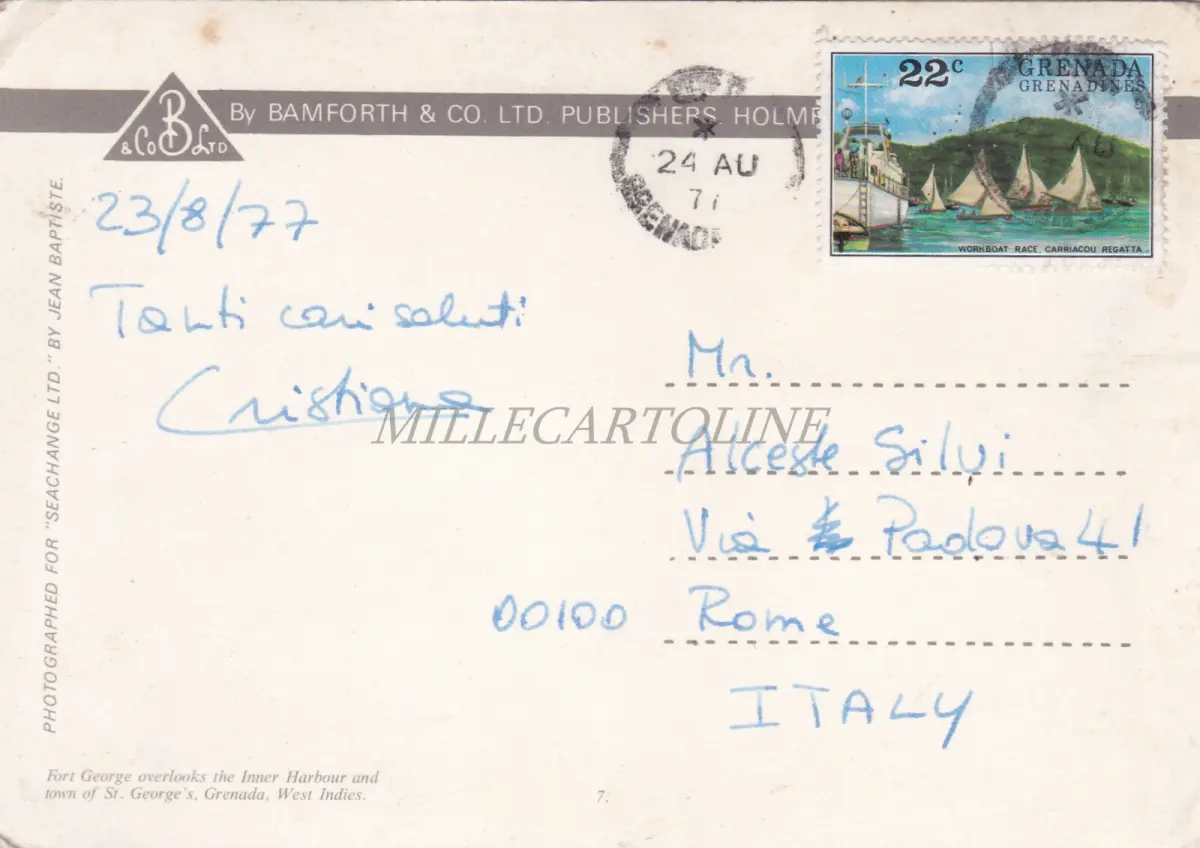 B
& Co LTD
By BAMFORTH & CO. LTD. PUBLISHERS, HOLMF
24 AU
77
GRENAD
22c
GRENADA
GRENADINES
WORKBOAT RACE, CARRIACOU REGATTA
AU
PHOTOGRAPHED FOR "SEACHANGE LTD." BY JEAN BAPTISTE.
23/8/77
Tanti cari saluti
Cristiana
MILLECARTOLINE
Mr.
Alceste Silvi
Via Padova 41
00100 Rome
ITALY
Fort George overlooks the Inner Harbour and
town of St. George's, Grenada, West Indies.
7.